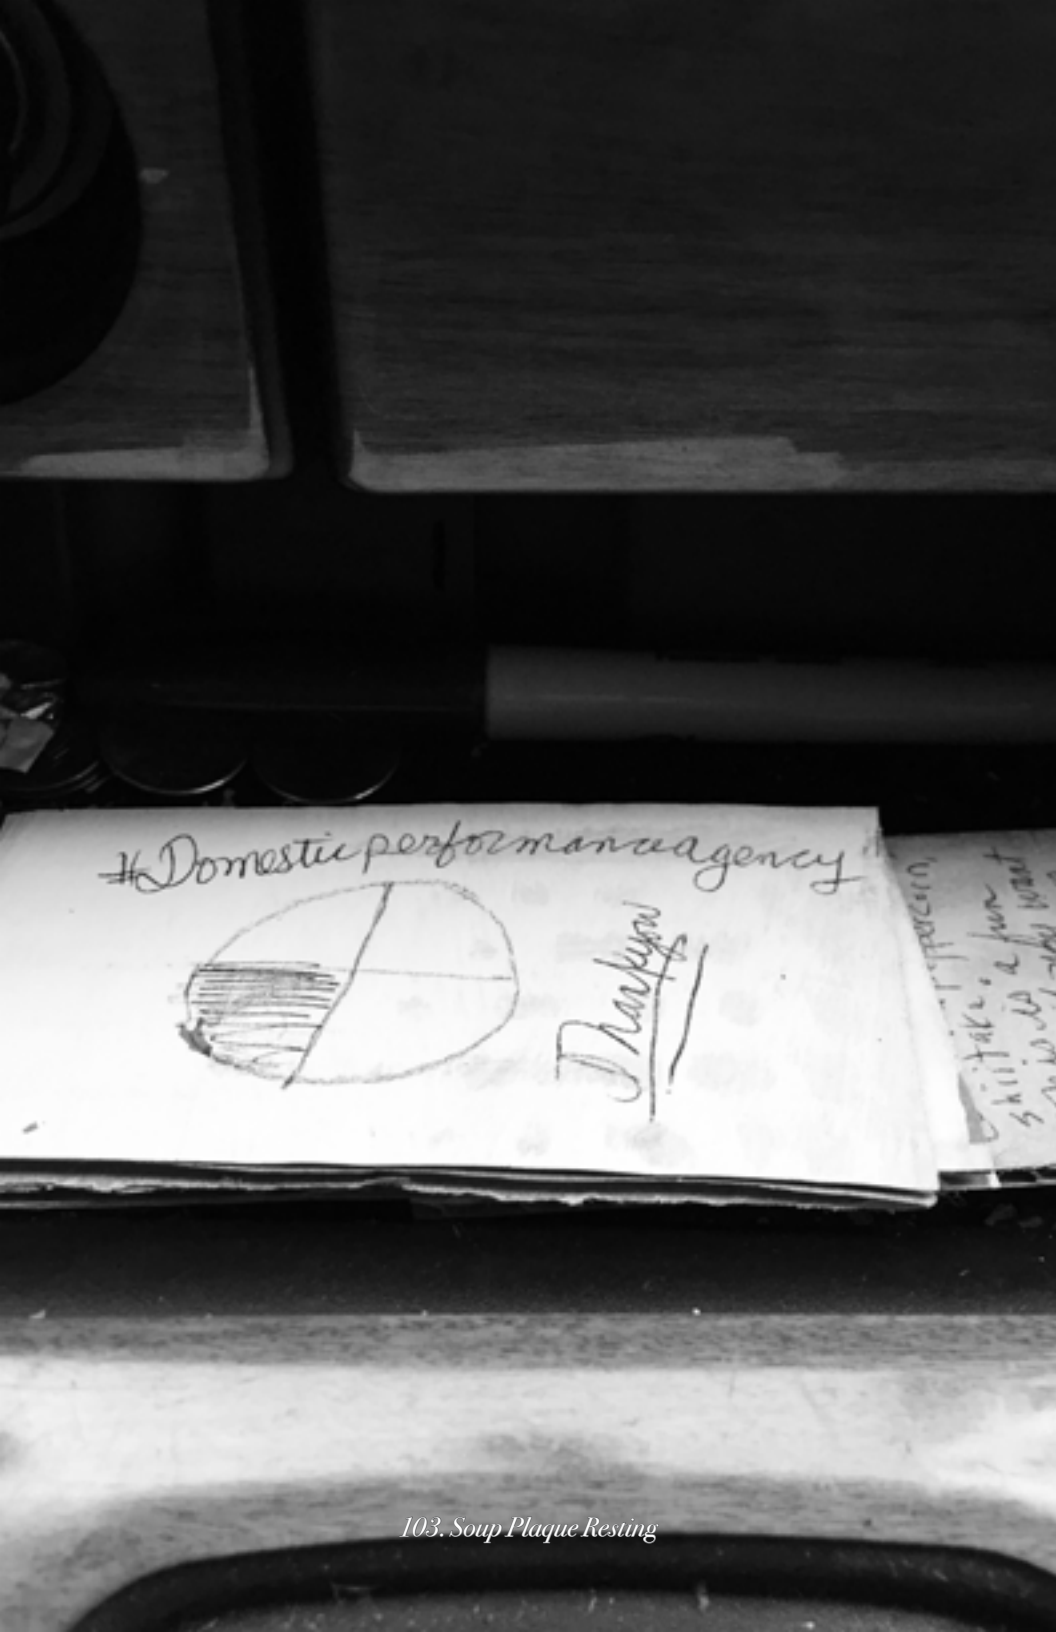 #Domesticperformanceagency
Thankyou
shiitake. a fun
this is
103. Soup Plaque Resting